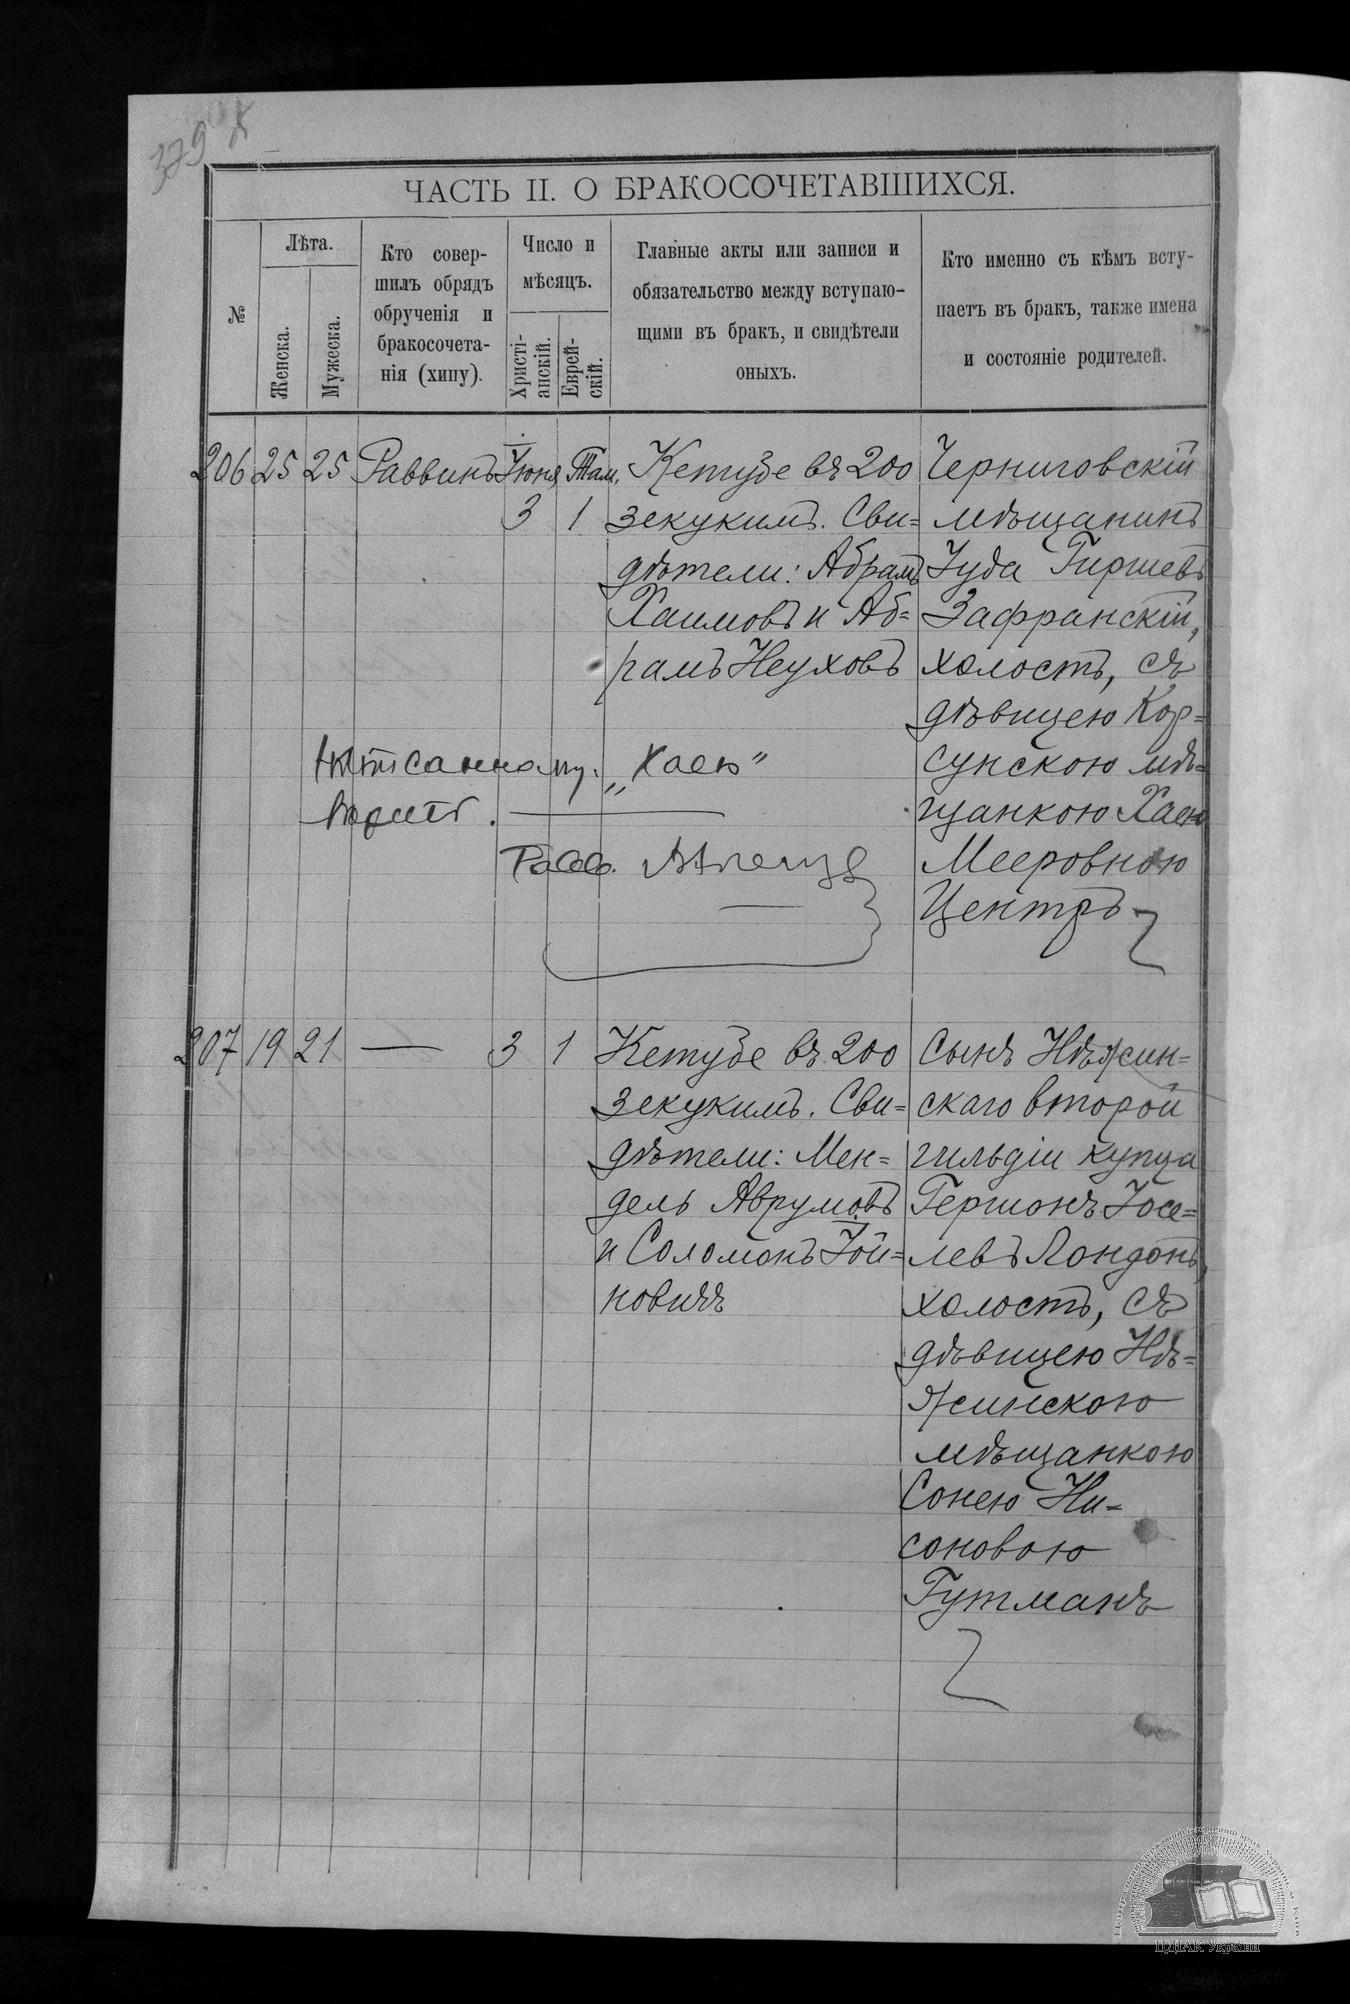 379
ЧАСТЬ II. О БРАКОСОЧЕТАВШИХСЯ.
№
Лѣта.
Женска.
Мужеска.
Кто совер-
шилъ обрядъ
обрученія и
бракосочета-
нія (хипу).
Число и
мѣсяцъ.
Христі-
анскій.
Еврей-
скій.
Главные акты или записи и
обязательство между вступаю-
щими въ бракъ, и свидѣтели
оныхъ.
Кто именно съ кѣмъ всту-
паетъ въ бракъ, также имена
и состояніе родителей.
206 25 25 Раввинъ Іюня 3 Там. 1
Кетубе въ 200
зекукимъ. Сви=
дѣтели: Абрамъ
Хаимовъ и Аб=
рамъ Неуховъ
Черниговскій
мѣщанинъ
Іуда Гиршевъ
Зафранскій,
холостъ, съ
дѣвицею Кор=
сунскою мѣ=
щанкою Хаею
Мееровною
Центръ
„Хаею"
вѣрить.
Равв.
207 19 21 — 3 1
Кетубе въ 200
зекукимъ. Сви=
дѣтели: Мен=
дель Аврумовъ
и Соломонъ Іой=
новичъ
Сынъ Нѣжин=
скаго второй
гильдіи купца
Гершонъ Іосе=
левъ Лондонъ,
холостъ, съ
дѣвицею Нѣ=
жинскою
мѣщанкою
Сонею Ни=
соновою
Гутманъ
ЦДІАК України